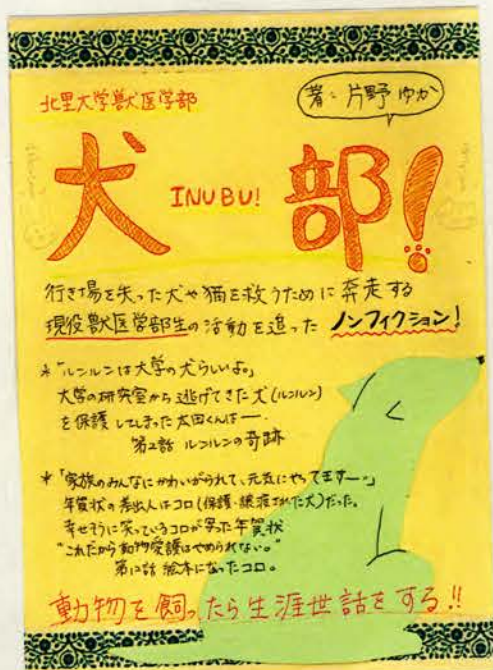 北里大学獣医学部
著:片野ゆか
犬部!
INUBU!
行き場を失った犬や猫を救うために奔走する
現役獣医学部生の活動を追った ノンフィクション!
*「ルンルンは大学の犬らしいよ。」
大学の研究室から逃げてきた犬(ルンルン)
を保護してしまった太田くんは——.
第2話 ルンルンの奇跡
*「家族のみんなにかわいがられて、元気にやってます——。」
年賀状の差出人はコロ(保護・譲渡された犬)だった。
幸せそうに笑っているコロが写った年賀状
“これだから動物愛護はやめられない。”
第12話 絵本になったコロ。
動物を飼ったら生涯世話をする!!